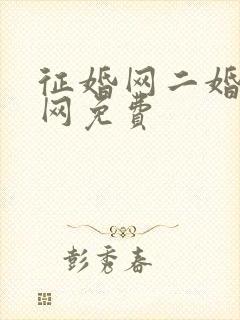 征婚网二婚
网免费
彭秀春